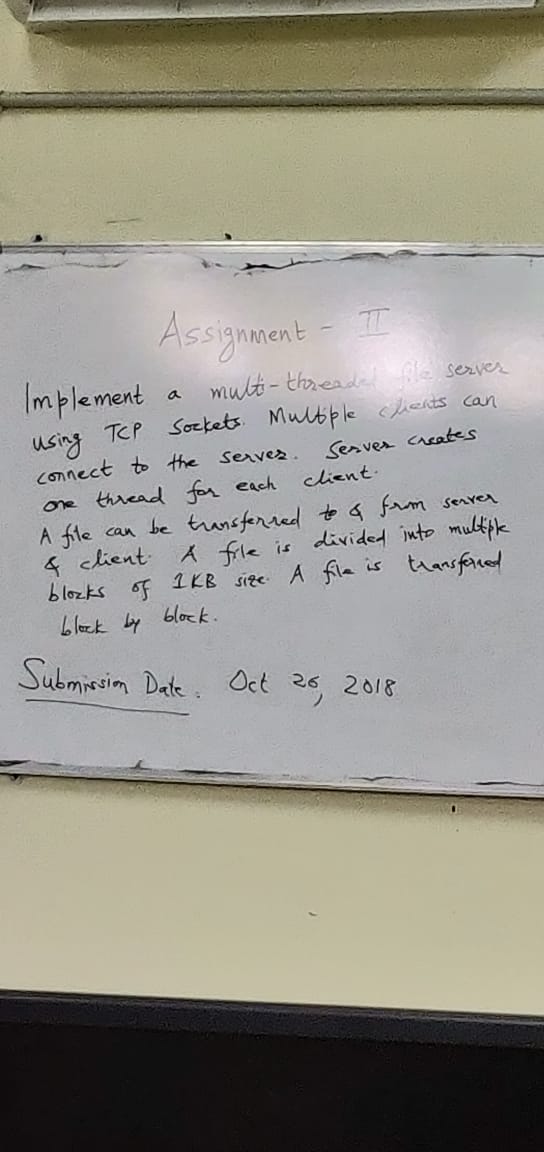 Assignment - II
Implement a multi-threaded file server
using TCP Sockets. Multiple clients can
connect to the server. Server creates
one thread for each client.
A file can be transferred to & from server
& client. A file is divided into multiple
blocks of 1KB size. A file is transferred
block by block.
Submission Date: Oct 26, 2018